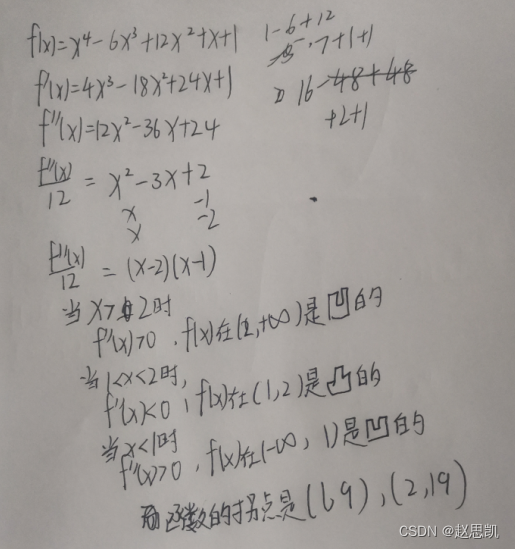 f(x)=x⁴-6x³+12x²+x+1
f'(x)=4x³-18x²+24x+1
f''(x)=12x²-36x+24
f''(x)/12 = x²-3x+2
x -1
x -2
f''(x)/12 = (x-2)(x-1)
当x>2时
f''(x)>0,f(x)在(2,+∞)是凹的
当1<x<2时,
f''(x)<0,f(x)在(1,2)是凸的
当x<1时
f''(x)>0,f(x)在(-∞,1)是凹的
函数的拐点是(1,9),(2,19)
1-6+12
7+1+1
16-48+48
+2+1
CSDN @赵思凯